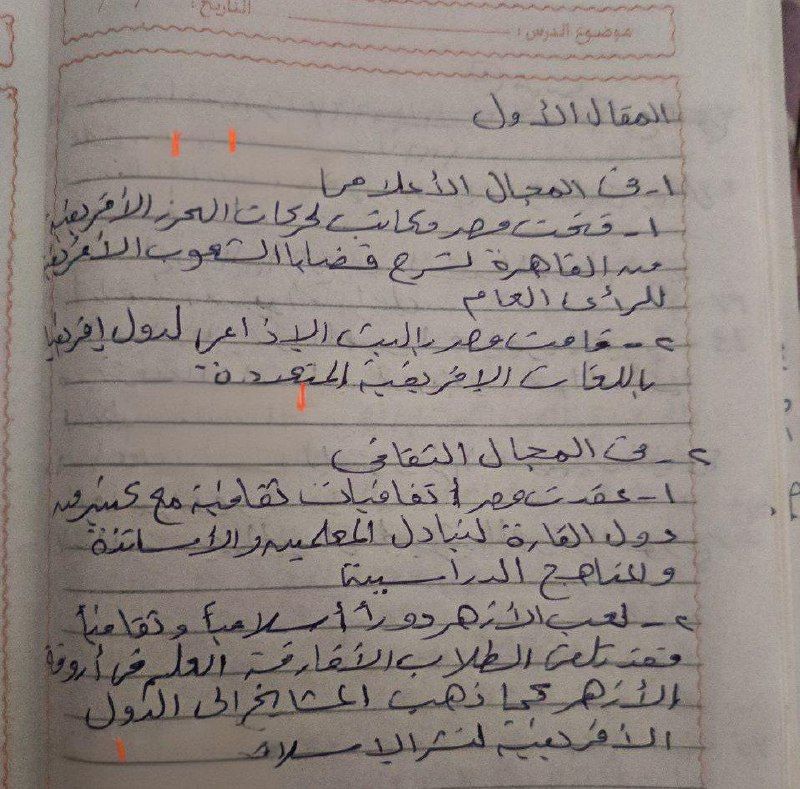 التاريخ :
موضوع الدرس :
المقال الأول
١- فى المجال الأعلامى
١- فتحت مصر مكاتب لحركات التحرر الأفريقية
من القاهرة لشرح قضايا الشعوب الأفريقية
للرأى العام
٢- قامت مصر بالبث الإذاعى لدول إفريقيا
باللغات الإفريقية المتعددة
٢- فى المجال الثقافى
١- عقدت مصر أتفاقيات ثقافية مع كثير من
دول القارة لتبادل المعلمين والأساتذة
والمناهج الدراسية
٢- لعب الأزهر دورأ أسلاميأ وثقافيأ
فقد تلقى الطلاب الأفارقة العلم فى أروقة
الأزهر كما ذهب المشايخ الى الدول
الأفريقية لنشر الإسلام